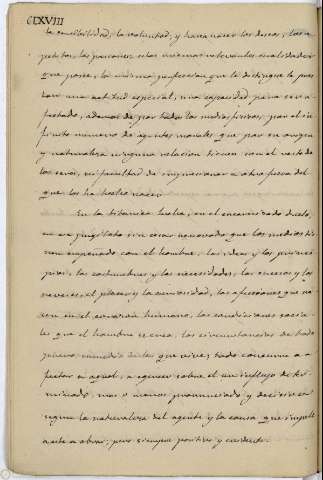 CLXVIII
la sensibilidad, la voluntad; y hace nacer los deseos, los a-
petitos, las pasiones, estas mismas relevantes cualidades
que posee, la misma perfeccion que le distingue le pres-
tan una actitud especial, una capacidad para ser a-
fectado, ademas de por todos los medios fisicos, por el in-
finito numero de agentes morales que por su origen
y naturaleza ninguna relacion tienen con el resto de
los seres, ni facultad de impresionar a otro fuera del
que los ha hecho nacer.
En la titanica lucha, en el encarnizado duelo,
en su pugilato sin cesar renovado que los medios tie-
nen empeñado con el hombre, las ideas y los princi-
pios, las costumbres y las necesidades, los sucesos y los
reveses, el placer y la curiosidad, las afecciones que na-
cen en el corazon humano, las condiciones socia-
les que el hombre se crea, las circunstancias de todo
genero en medio de las que vive; todo concurre a a-
fectar a aquel, a ejercer sobre el un influjo de ter-
minado, mas o menos pronunciado y decisivo se-
gun la naturaleza del agente y la causa que impele
a este a obrar; pero siempre positivo y evidente.